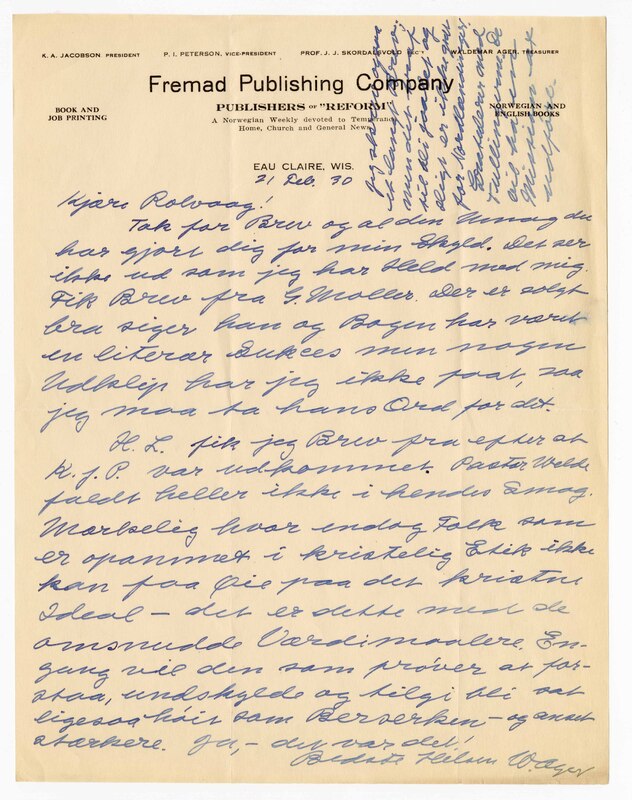 K. A. JACOBSON PRESIDENT P. I. PETERSON, VICE-PRESIDENT PROF. J. J. SKORDALSVOLD SEC'Y WALDEMAR AGER, TREASURER
Fremad Publishing Company
BOOK AND
JOB PRINTING
PUBLISHERS OF "REFORM"
A Norwegian Weekly devoted to Temperance
Home, Church and General News
NORWEGIAN AND
ENGLISH BOOKS
EAU CLAIRE, WIS.
21 Feb. 30
Kjære Rolvaag!
Tak for Brev og al den Umag du
har gjort dig for min Skyld. Det ser
ikke ud som jeg har Held med mig.
Fik Brev fra G. Moller. Der er solgt
bra siger han og Bogen har været
en literær Sukces men nogen
Udklip har jeg ikke faat, saa
jeg maa ta hans Ord for det.
H. L. fik jeg Brev fra efter at
K. J. P. var udkommet. Pastor Welde
faldt heller ikke i hendes Smag.
Mærkelig hvor endog Folk som
er opammet i kristelig Etik ikke
kan faa Øie paa det kristne
Ideal – det er dette med de
omsnudde Værdimaalere. En-
gang vil den som prøver at for-
staa, undskylde og tilgi bli sat
ligesaa høit som Berserken – og anset
stærkere. Ja, – det var det!
Bedste Hilsen W. Ager
Jeg
et langt
til
er ikke
for Nordlandslaget